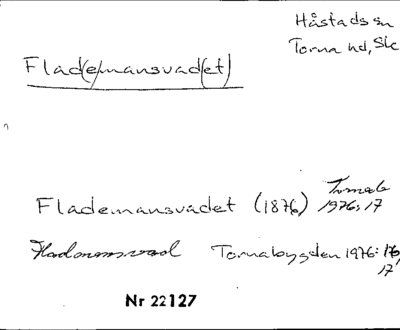 Håstads sn
Torna hd, Sk
Flad(e)mansvad(et)
Flademansvadet (1876) 1976:17
Fladmansvad Tornabygden 1976: 16,
17
Nr 22127